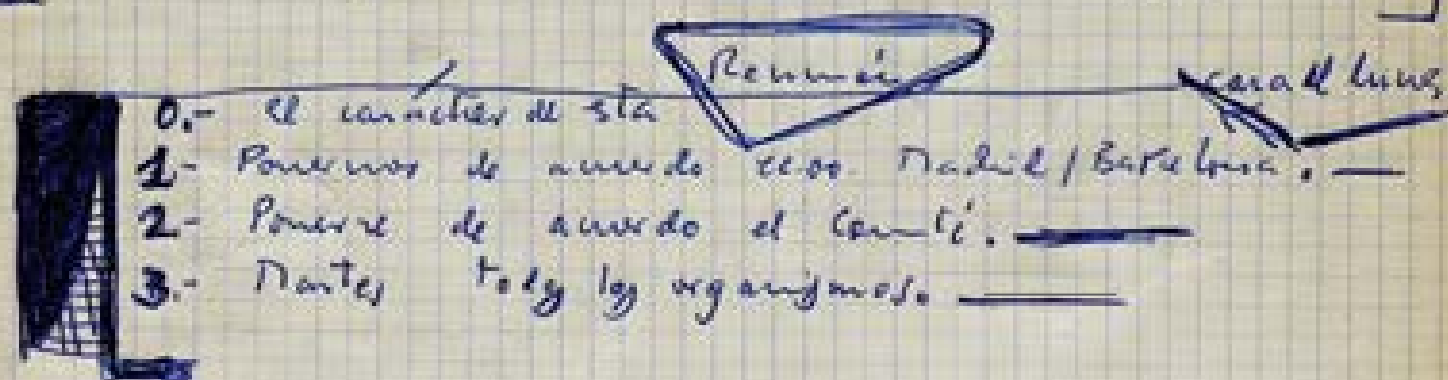 Reunión cara al lunes
0.- El carácter de esta
1- Ponernos de acuerdo CC.OO. Madrid / Barcelona.
2- Ponerse de acuerdo el Comité.
3.- Martes todos los organismos.